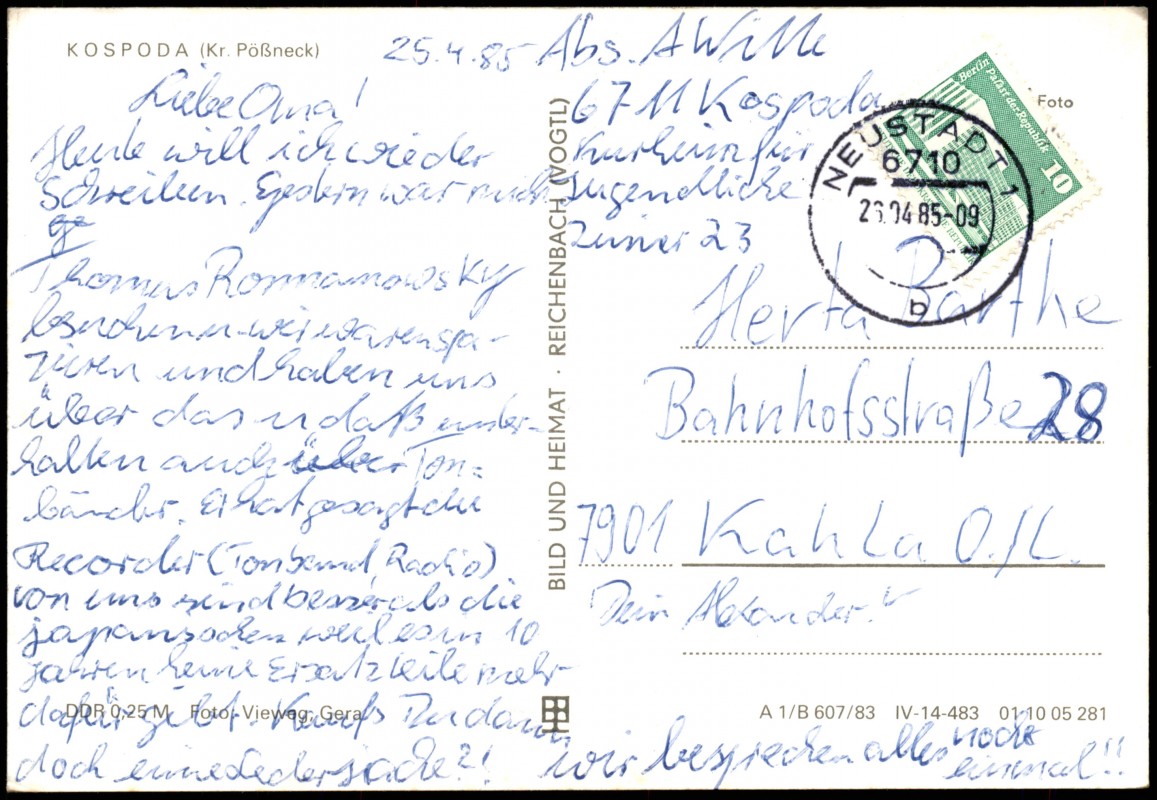 KOSPODA (Kr. Pößneck)
25.4.85
Liebe Oma!
Heute will ich wieder
schreiben. Gestern war mich
Thomas Rommanowsky
besuchen wir waren spa-
zieren und haben uns
über das u daß unter-
halten auch über Ton-
bänder. Er hat gesagt die
Recorder (Tonband, Radio)
von uns sind besser als die
japanischen weil es in 10
Jahren keine Ersatzteile mehr
dafür gibt. Kaufs Du dann
doch
wir besprechen alles noch
einmal!!
Abs. A Wille
6711 Kospoda
Kurheim für
Jugendliche
Zimer 23
Foto
Berlin
Palast der Republik
10
NEUSTADT 1
6710
26.04.85-09
b
Herta Barthe
Bahnhofsstraße 28
7901 Kahla O./L.
Dein Alexander!
BILD UND HEIMAT · REICHENBACH (VOGTL)
DDR 0,25 M Foto: Vieweg, Gera
A 1/B 607/83 IV-14-483 01 10 05 281